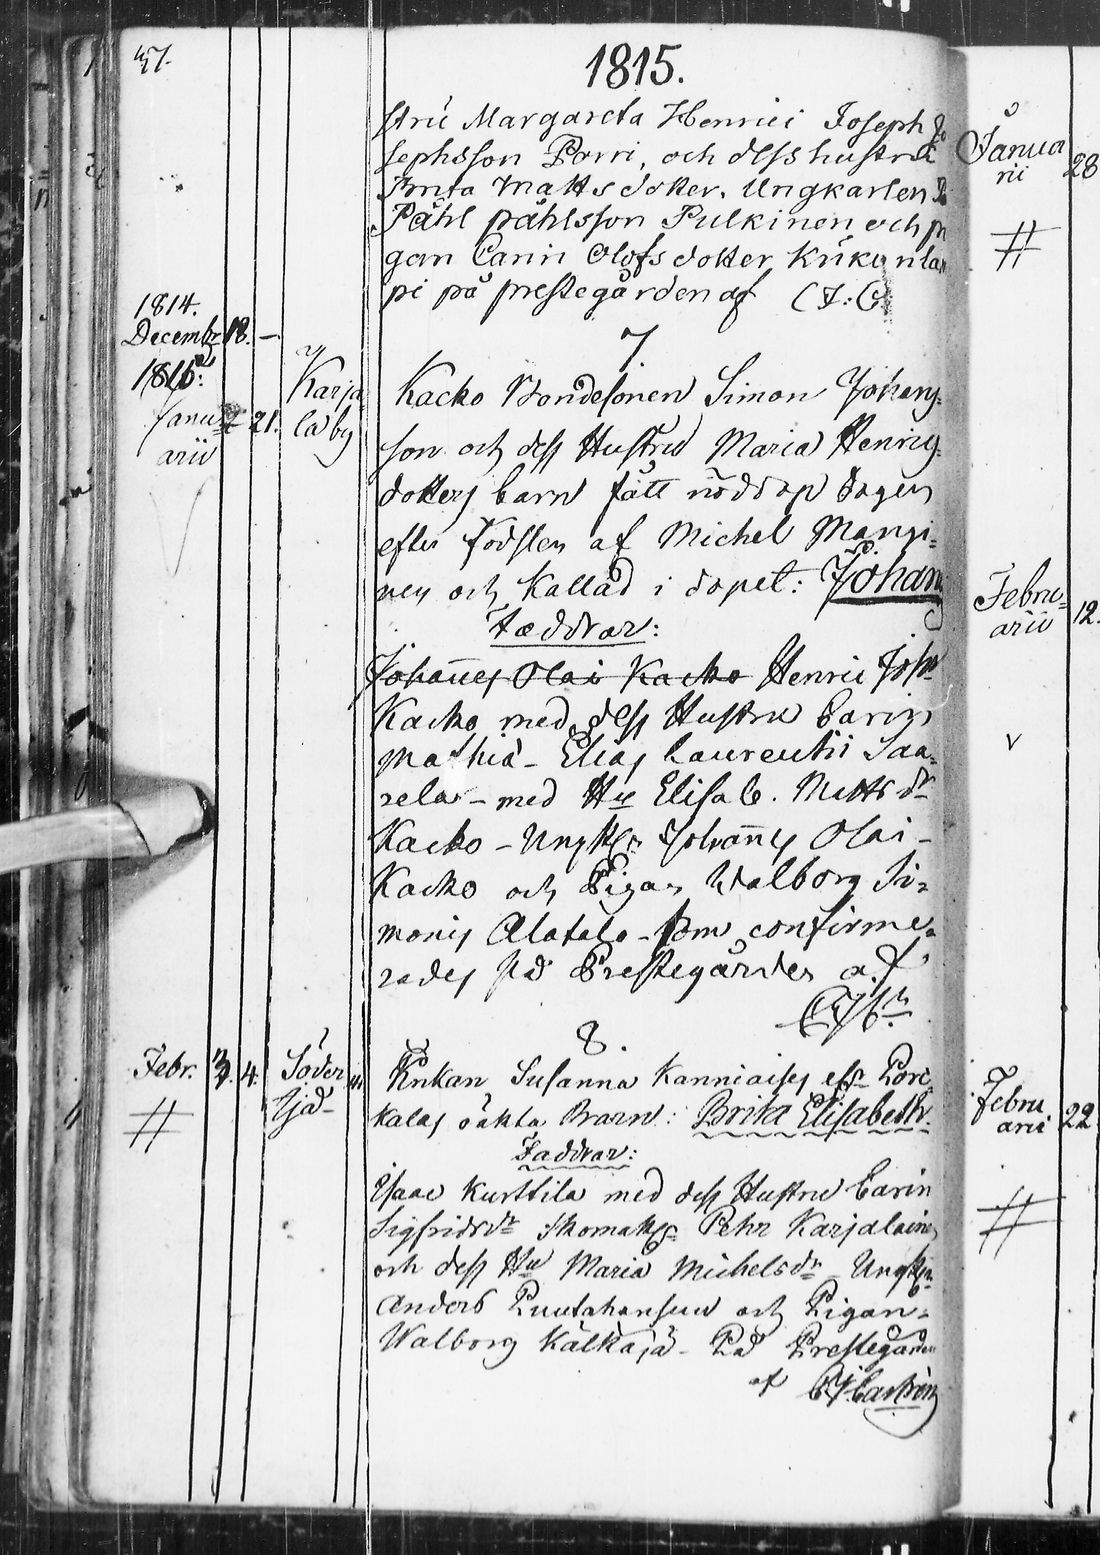 47.
1815.
strú Margareta Henrici Joseph Jo
sephsson Porri, och dess hustru
Brita Mattsdotter. Ungkarlen
Påhl påhlsson Pulkinen och pi
gan Carin Olofsdotter Kukonlam
pi på prestegården af
1814.
Decembr 18. —
7.
1815:
Janu
arii
21.
Karja
la by
Kacko Bondesonen Simon Johans
son och dess Hustru Maria Henrigs
dotters barn fått nöddop dagen
efter Födslen af Michel Mangi=
nen och Kallad i dopet: Johan
Fæddrar:
Johannes Olai Kacko Henric Johs
Kacko med dess Hustru Carin
Mathiæ - Elias Laurentii Saa=
rela - med Hu Elisab. Matts dr
Kacko - Ungk Johannes Olai -
Kacko och Pigan Walborg Si=
monis Alatalo - som confirme=
rades på Prestegården af
8.
Febr. 3. 4.
Söder
tjä-
Enkan Susanna Kanniaises
kalas oäkta Barn: Brita Elisabeth.
Faddrar:
Isaac Kurttila med dess Hustru Carin
Sigfridsdr Skomak Pehr Karjalainen
och dess Hu Maria Michelsdr - Ungk
Anders Puutahansuu och Pigan
Walborg Kälkäjä - På Prestegården
af CJ Castrén
Janua
rii
28
Febru=
arii
12.
v
Febru
arii
22